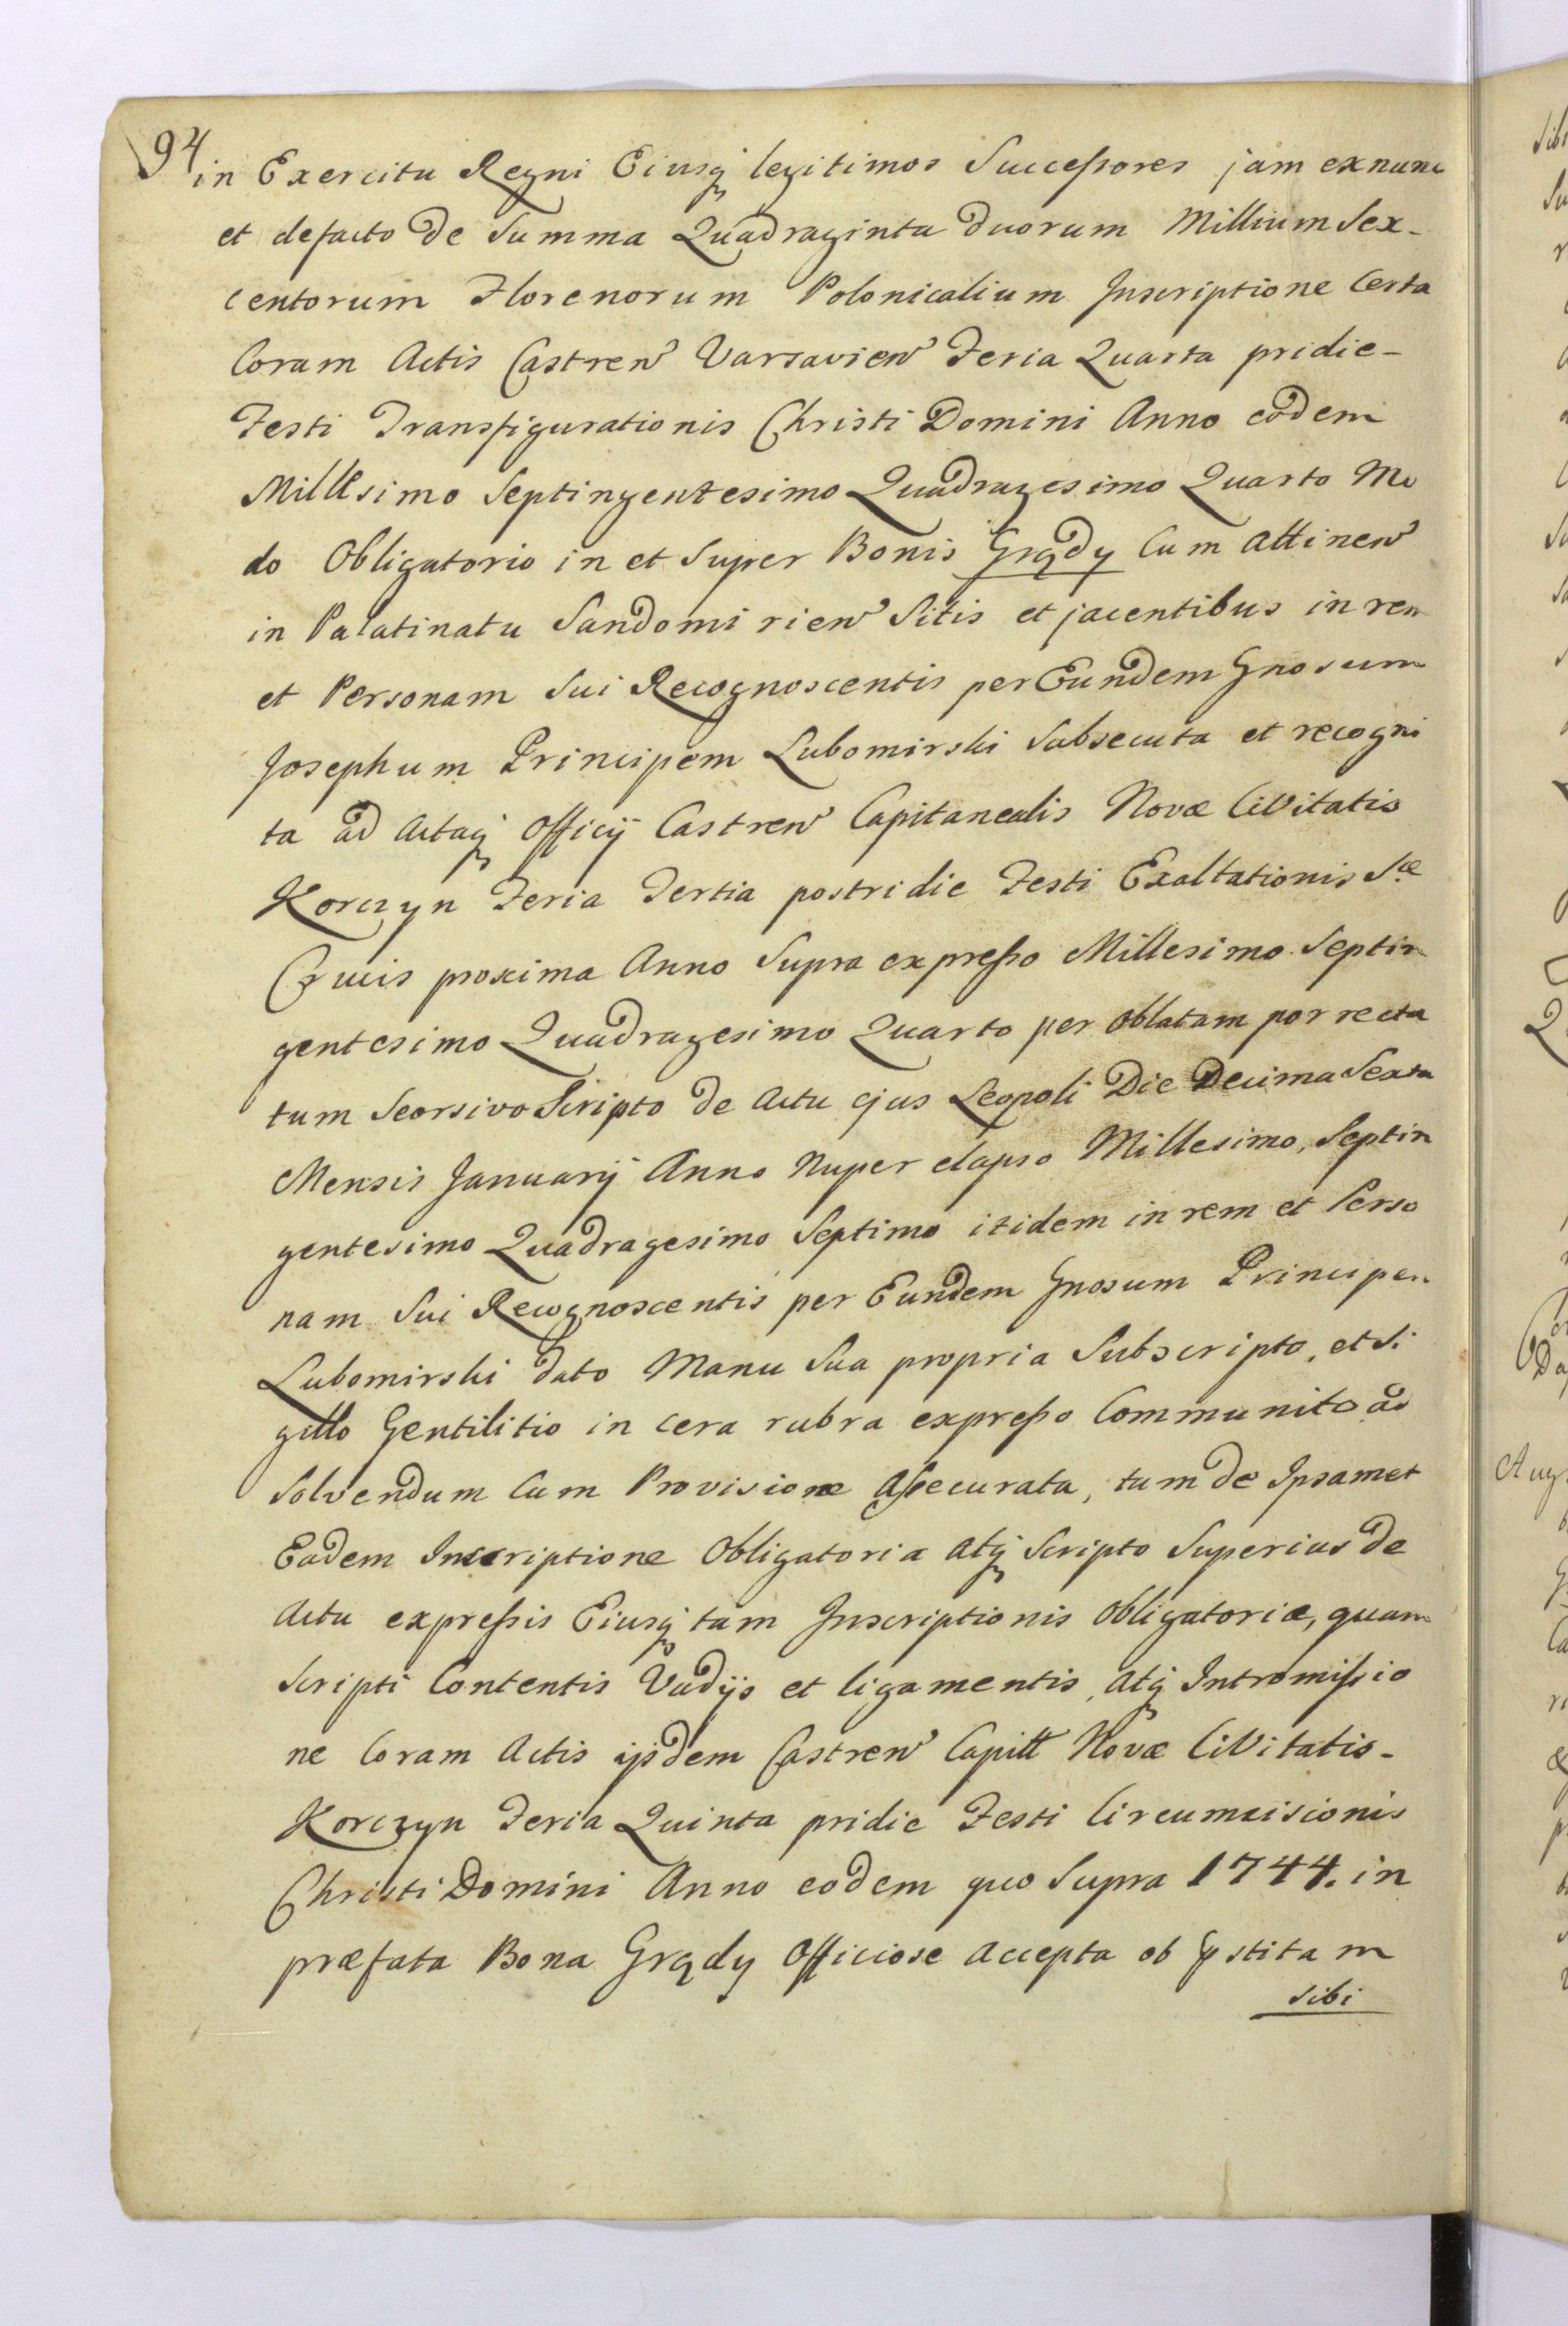 94
in Exercitu Regni Eiusq; legitimos Successores jam exnunc
et defacto de Summa Quadraginta duorum Millium Sex-
centorum Florenorum Polonicalium Inscriptione Certa
Coram Actis Castren̄ Varsavien̄ Feria Quarta pridie-
Festi Transfigurationis Christi Domini Anno eodem
Millesimo Septingentesimo Quadragesimo Quarto Mo
do Obligatorio in et Super Bonis Grądy Cum Attinen̄
in Palatinatu Sandomirien̄ Sitis et jacentibus in rem
et Personam Sui Recognoscentis per Eundem Gnosum
Josephum Principem Lubomirski Subsecuta et recogni
ta ad Actaq; Officij Castren̄ Capitanealis Novæ Civitatis
Korczyn Feria Tertia postridie Festi Exaltationis Sæ
Crucis proxima Anno Supra expresso Millesimo Septin
gentesimo Quadragesimo Quarto per Oblatam porrecta
tum Seorsivo Scripto de Actu ejus Leopoli Die Decima Sexta
Mensis Januarij Anno Nuper elapso Millesimo, Septin
gentesimo Quadragesimo Septimo itidem in rem et Perso
nam Sui Recognoscentis per Eundem Gnosum Principem
Lubomirski dato Manu Sua propria Subscripto, et Si
gillo Gentilitio in cera rubra expresso Communito ad
Solvendum Cum Provisione Assecurata, tum de Ipsamet
Eadem Inscriptione Obligatoria atq; Scripto Superius de
Actu expressis Eiusq; tam Inscriptionis Obligatoriæ, quam
Scripti Contentis Vadijs et ligamentis, atq; Intromissio
ne Coram Actis ijsdem Castren̄ Capitt Novæ Civitatis-
Korczyn Feria Quinta pridie Festi Circumcisionis
Christi Domini Anno eodem quo Supra 1744. in
præfata Bona Grądy Officiose Accepta ob p̱stitam
sibi